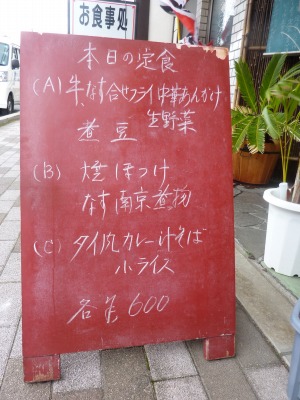 お食事処
本日の定食
(A) 牛、なす合せフライ中華あんかけ
煮豆 生野菜
(B) 焼ほっけ
なす南京煮物
(C) タイ風カレー汁そば
小ライス
各¥600